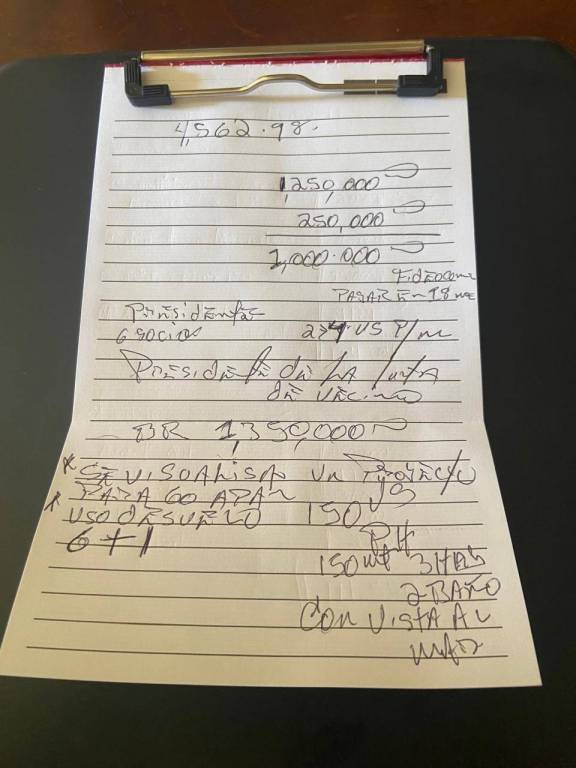 4,562.98.
1,250,000
250,000
1,000.000
PAGARE 18 ME
6 SOCIOS US P/M
PRESIDENTE DE LA JUNTA
DE VECINO
BR 1,350,000
* SE VISUALISA UN PROYECTO
* PARA 60 APAR
USO DE SUELO 150
6+1 PH
150 mt 3 HAB
2 BAÑO
CON VISTA AL
MAR